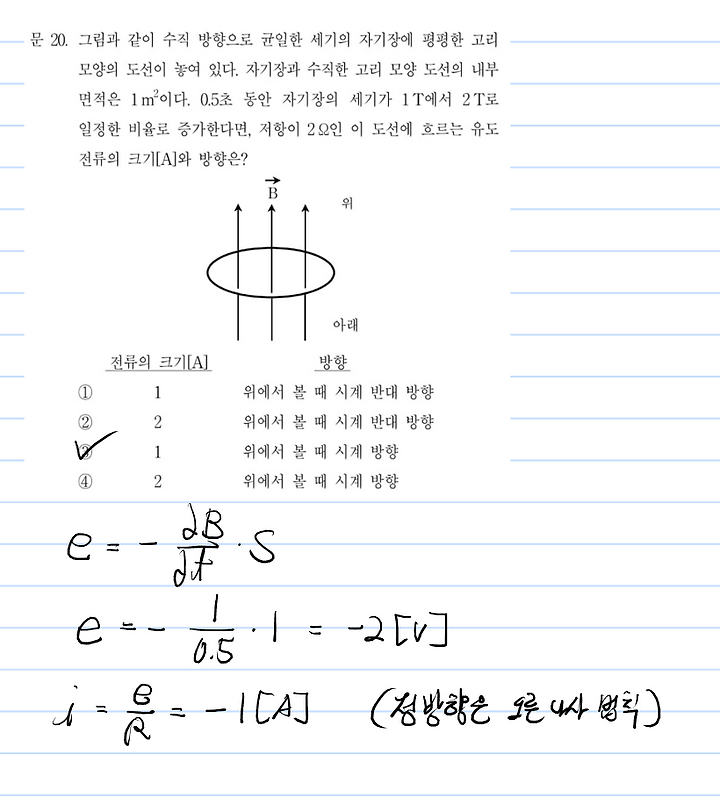 문 20. 그림과 같이 수직 방향으로 균일한 세기의 자기장에 평평한 고리
모양의 도선이 놓여 있다. 자기장과 수직한 고리 모양 도선의 내부
면적은 1 m²이다. 0.5초 동안 자기장의 세기가 1 T에서 2 T로
일정한 비율로 증가한다면, 저항이 2 Ω인 이 도선에 흐르는 유도
전류의 크기[A]와 방향은?
B
위
아래
전류의 크기[A] 방향
① 1 위에서 볼 때 시계 반대 방향
② 2 위에서 볼 때 시계 반대 방향
③ 1 위에서 볼 때 시계 방향
④ 2 위에서 볼 때 시계 방향
e = - ∂B/∂t · S
e = - 1/0.5 · 1 = -2 [V]
i = e/R = -1 [A] (정방향은 오른나사 법칙)